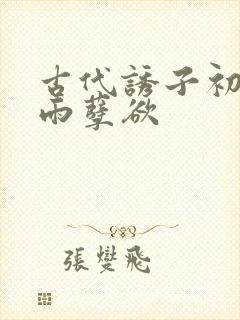 古代誘子初
雨孽欲
張孌飛